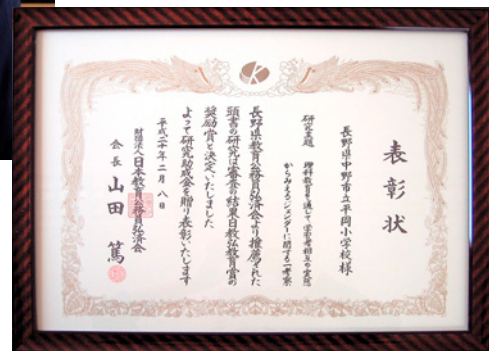 表彰状
長野県中野市立平岡小学校様
研究主題 理科教育を通して学習者相互の実態
からみえるジェンダーに関する一考察
長野県教育公務員弘済会より推薦された
頭書の研究は審査の結果日教弘教育賞の
奨励賞と決定いたしました
よって研究助成金を贈り表彰いたします
平成二十年二月八日
財団法人日本教育公務員弘済会
会長 山田 篤